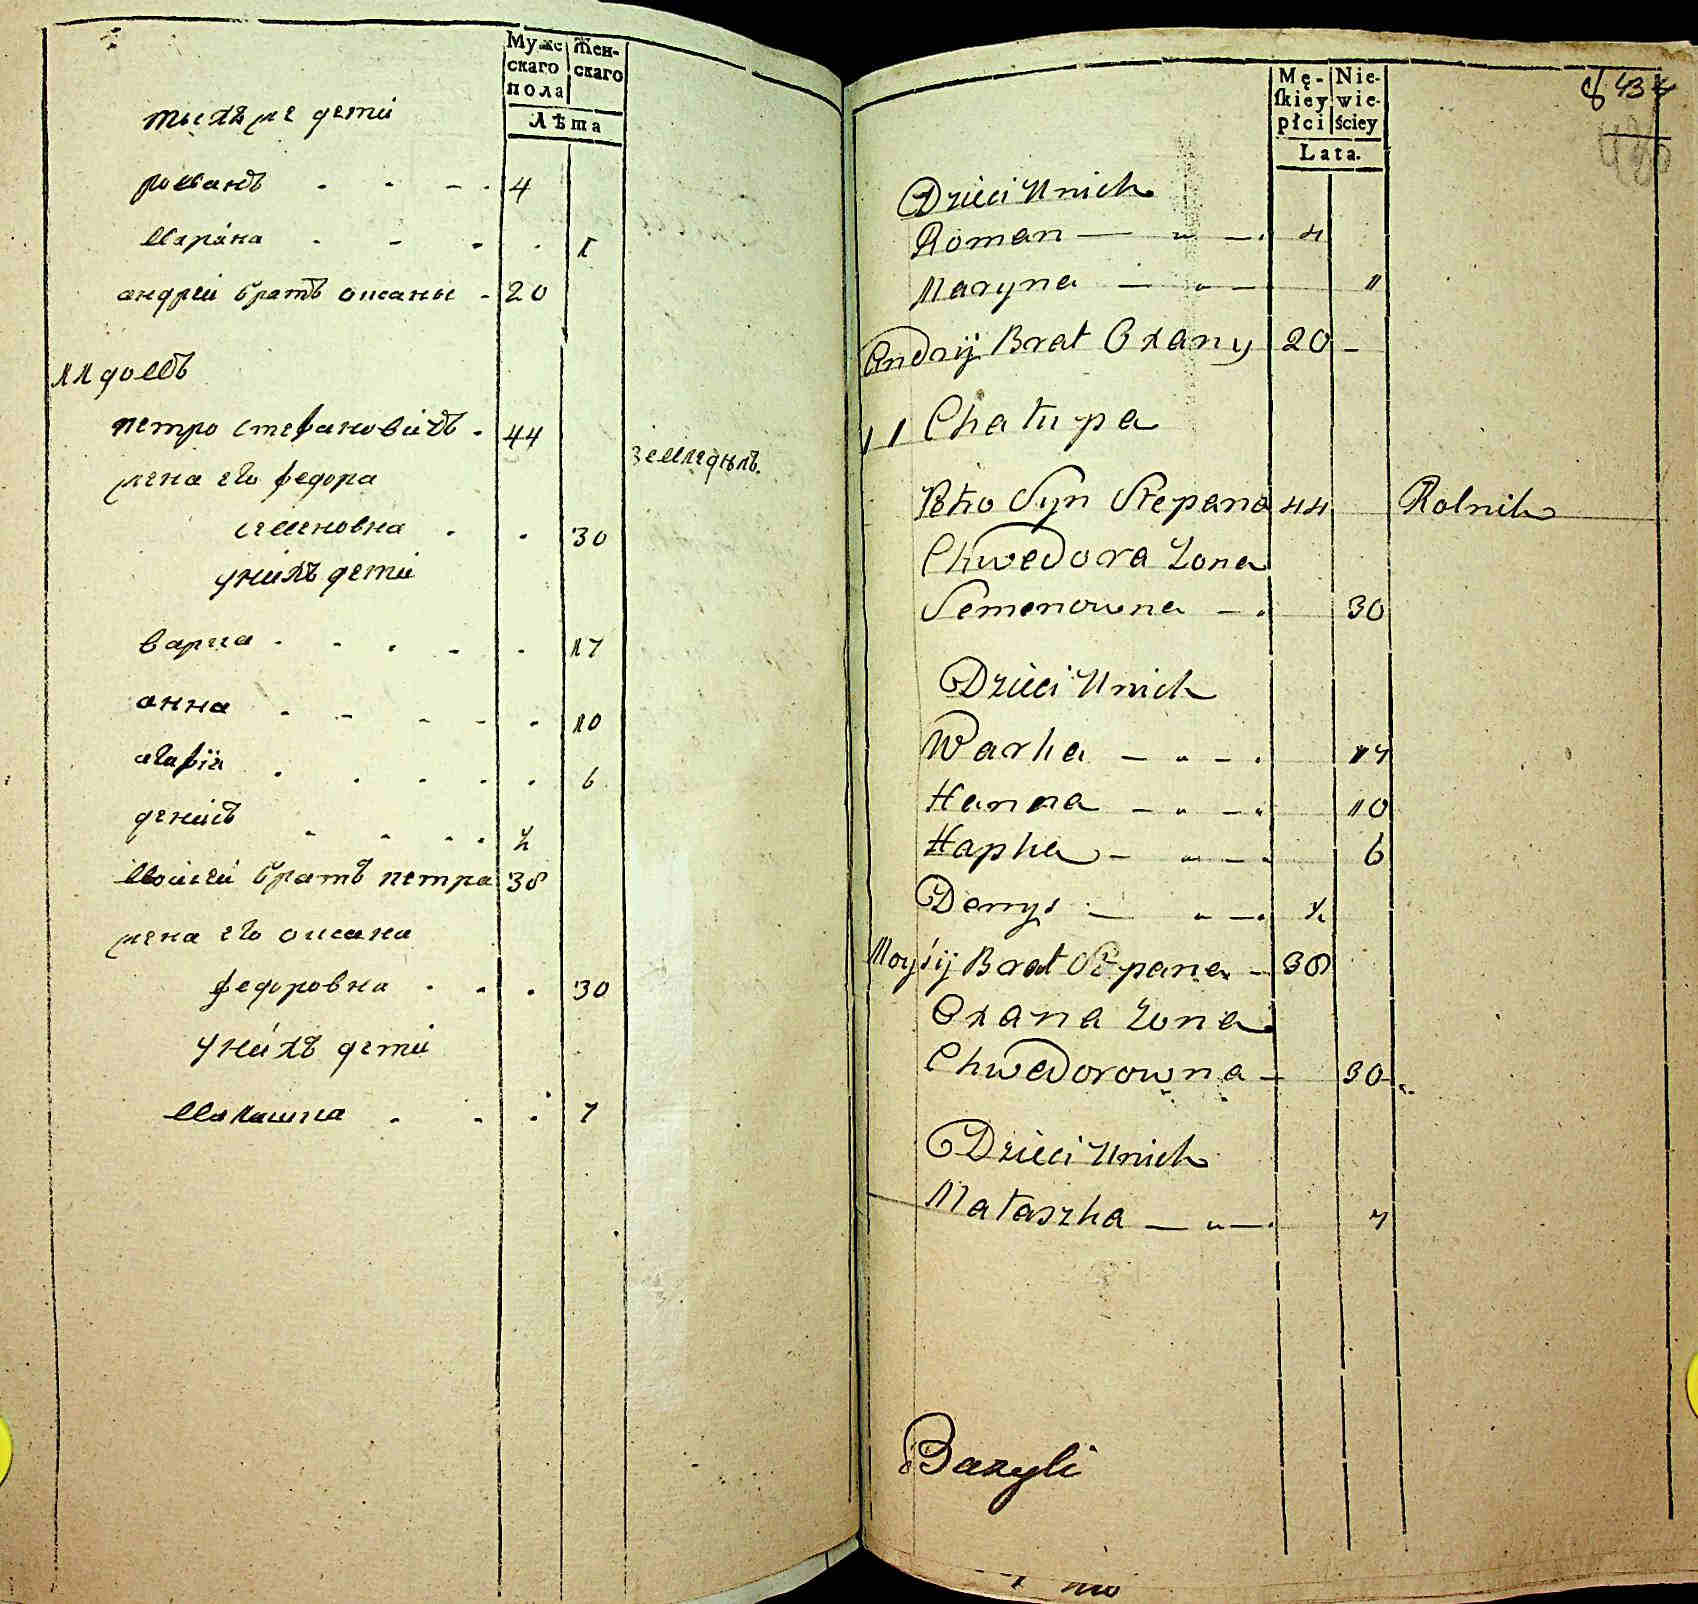 Муже Жен-
скаго скаго
пола
Лѣта
тыхъ же дети
романъ 4
Марина 1
андрей братъ оксаны 20
11 домъ
петро стефановичъ 44 земледѣл.
жена его федора
семеновна 30
у нихъ дети
варка 17
анна 10
агафия 6
денисъ ½
Моисей братъ петра 38
жена его оксана
федоровна 30
у нихъ дети
Малашка 7
Mę- Nie-
ſkiey wie-
płci ściey
Lata.
434
Dzieci Unich
Roman 4
Maryna 1
Andrij Brat Oxany 20
11 Chałupa
Petro Syn Stepana 44 Rolnik
Chwedora Zona
Semenowna 30
Dzieci Unich
Warka 17
Hanna 10
Hapka 6
Denys ½
Moysij Brat Stepana 38
Oxana Zona
Chwedorowna 30
Dzieci Unich
Małaszka 7
Bazyli